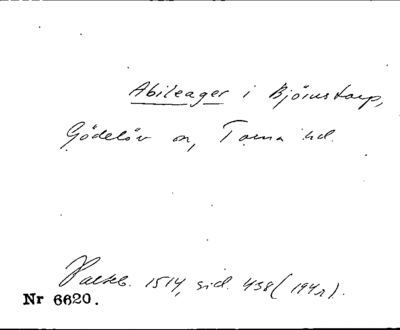 Abileager i Björnstorp,
Gödelöv sn, Torna hd.
Palteb. 1514, sid. 438 (194r).
Nr 6620.